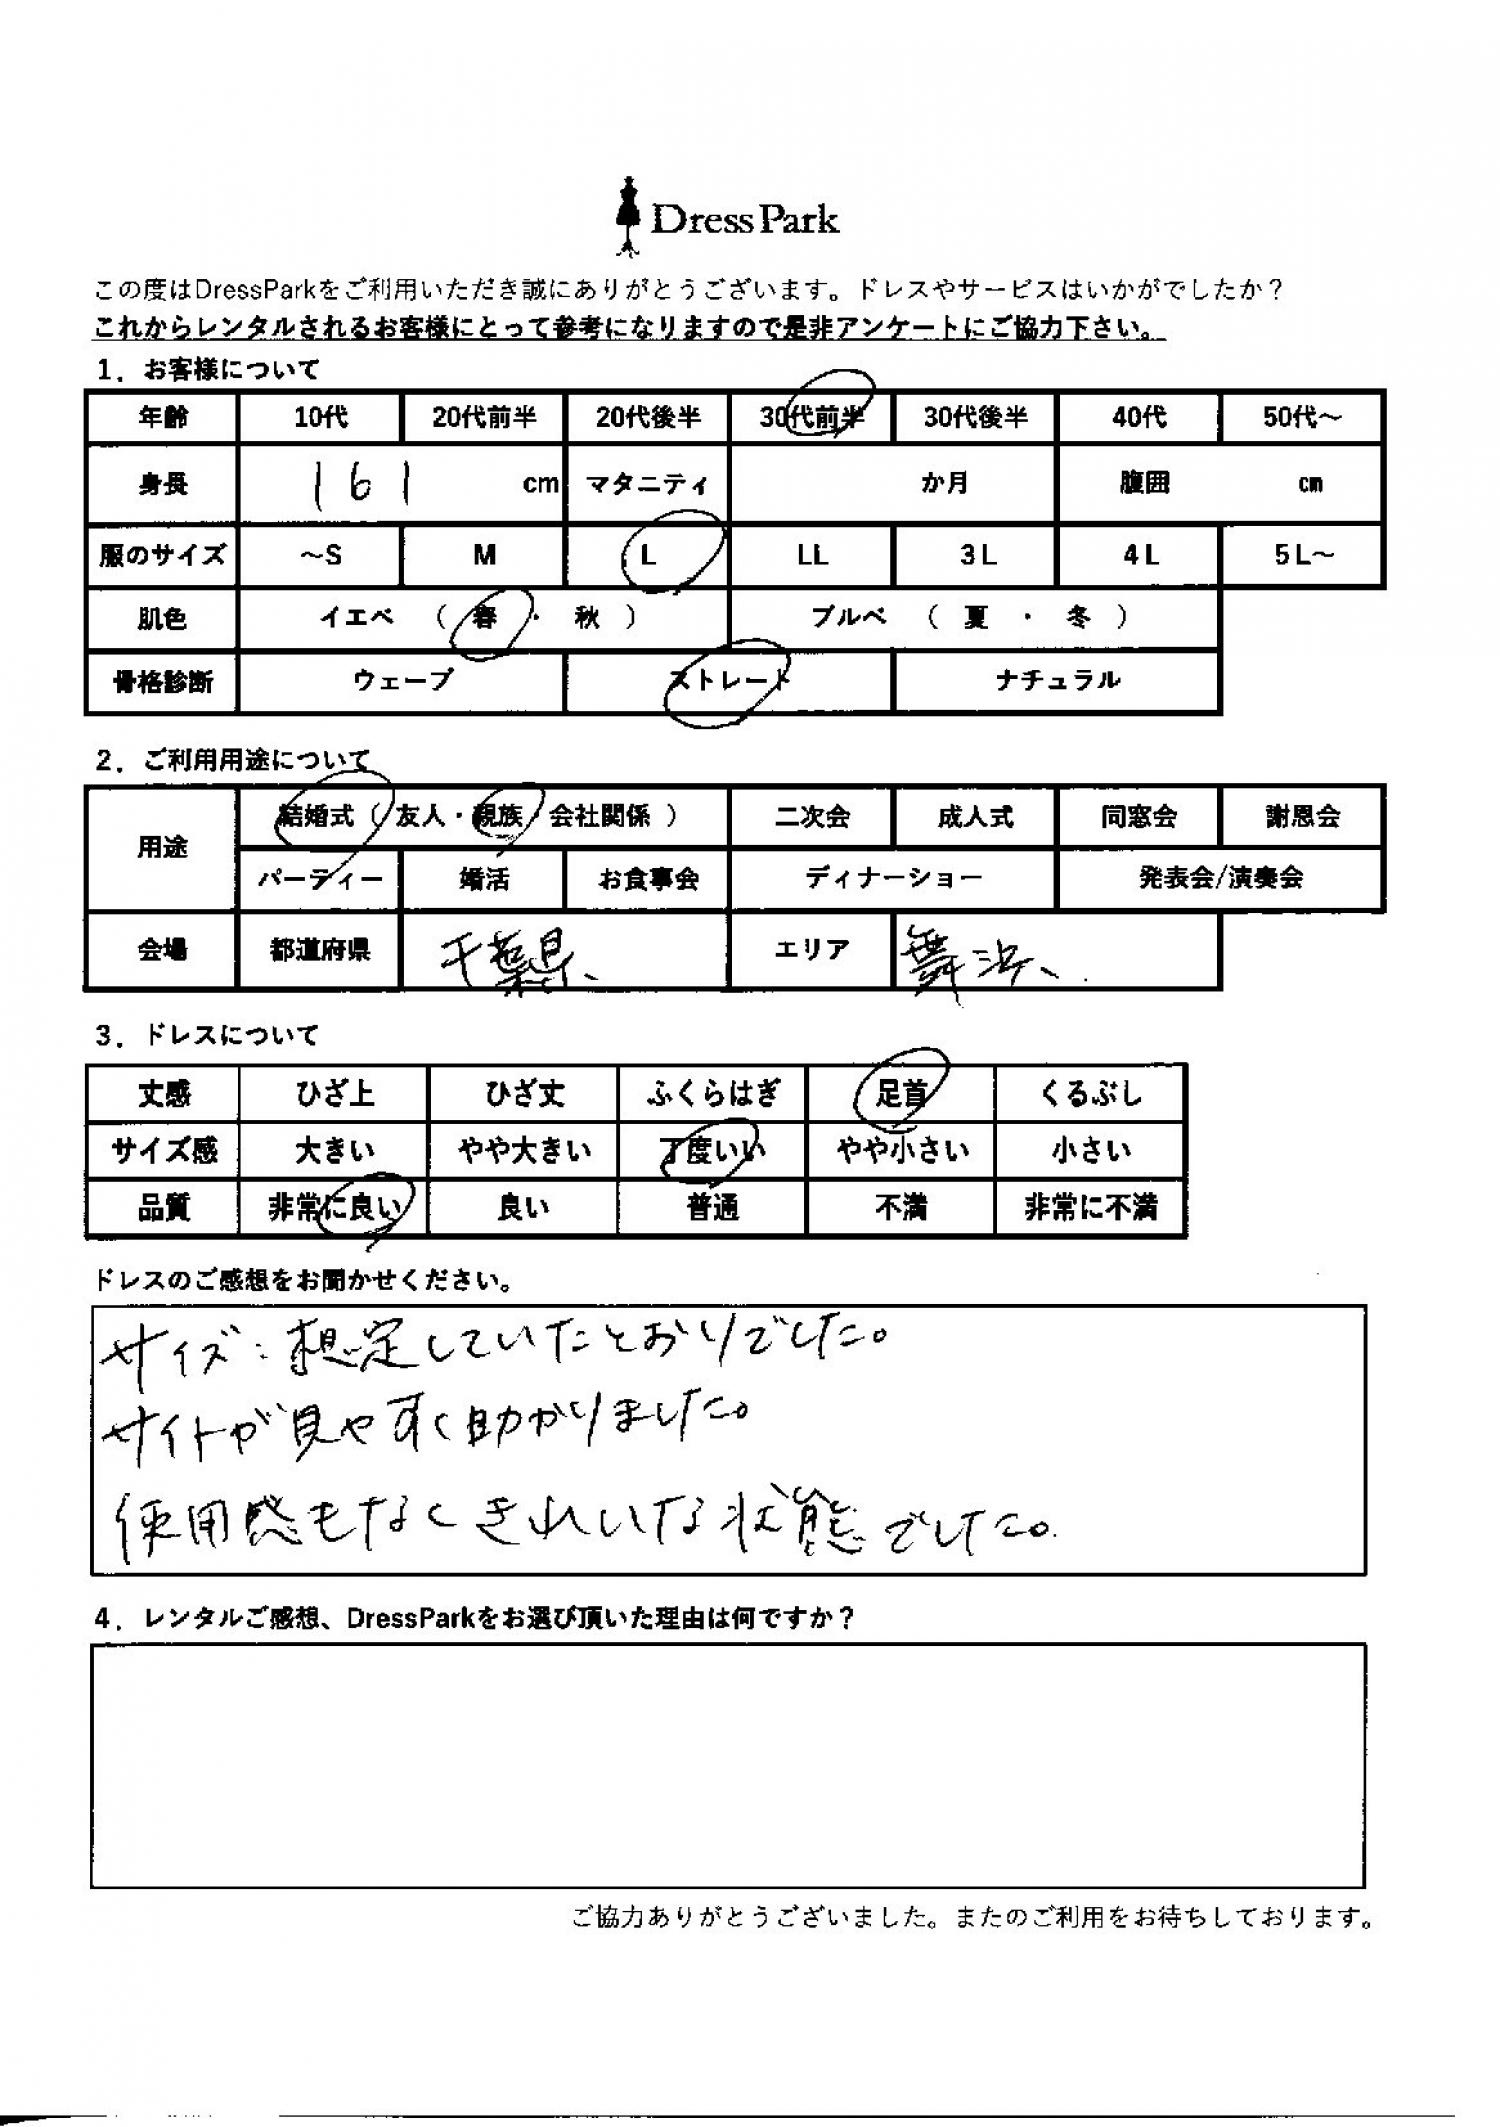 Dress Park
この度はDressParkをご利用いただき誠にありがとうございます。ドレスやサービスはいかがでしたか？
これからレンタルされるお客様にとって参考になりますので是非アンケートにご協力下さい。
1．お客様について
年齢 10代 20代前半 20代後半 30代前半 30代後半 40代 50代～
身長 161 cm マタニティ か月 腹囲 ㎝
服のサイズ ～S M L LL 3L 4L 5L～
肌色 イエベ （ 春 ・ 秋 ） ブルベ （ 夏 ・ 冬 ）
骨格診断 ウェーブ ストレート ナチュラル
2．ご利用用途について
用途 結婚式（ 友人・親族・会社関係 ） 二次会 成人式 同窓会 謝恩会
パーティー 婚活 お食事会 ディナーショー 発表会/演奏会
会場 都道府県 千葉県、 エリア 舞浜、
3．ドレスについて
丈感 ひざ上 ひざ丈 ふくらはぎ 足首 くるぶし
サイズ感 大きい やや大きい 丁度いい やや小さい 小さい
品質 非常に良い 良い 普通 不満 非常に不満
ドレスのご感想をお聞かせください。
サイズ：想定していたとおりでした。
サイトが見やすく助かりました。
使用感もなくきれいな状態でした。
4．レンタルご感想、DressParkをお選び頂いた理由は何ですか？
ご協力ありがとうございました。またのご利用をお待ちしております。